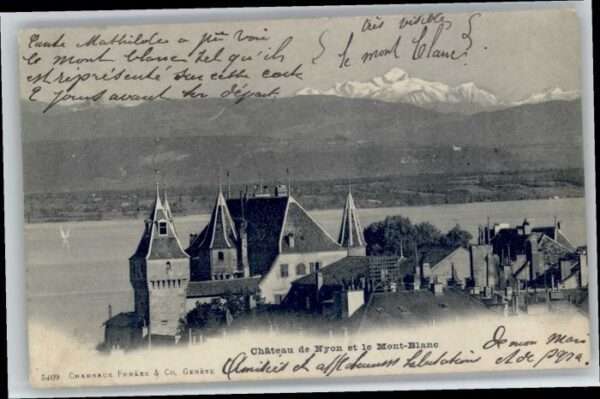 Tante Mathilde a pu voir
le mont blanc tel qu'il
est représenté sur cette carte
2 jours avant son départ
très visible
le mont Blanc
Château de Nyon et le Mont-Blanc
Amitiés et affectueuses salutations
de mon mari
et de
5409 Charnaux Frères & Co, Genève